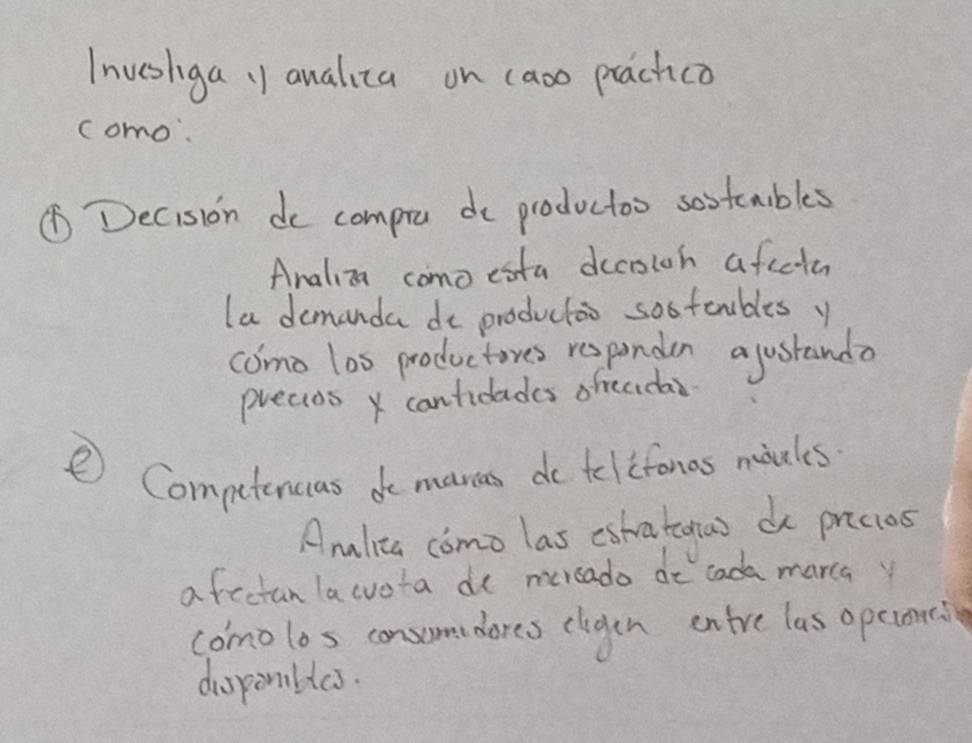 Investiga y analiza un caso práctico
como:
① Decisión de compra de productos sostenibles
Analiza cómo esta decisión afecta
la demanda de productos sostenibles y
cómo los productores responden ajustando
precios y cantidades ofrecidas.
② Competencias de marcas de teléfonos móviles.
Analiza cómo las estrategias de precios
afectan la cuota de mercado de cada marca y
cómo los consumidores eligen entre las opciones
disponibles.